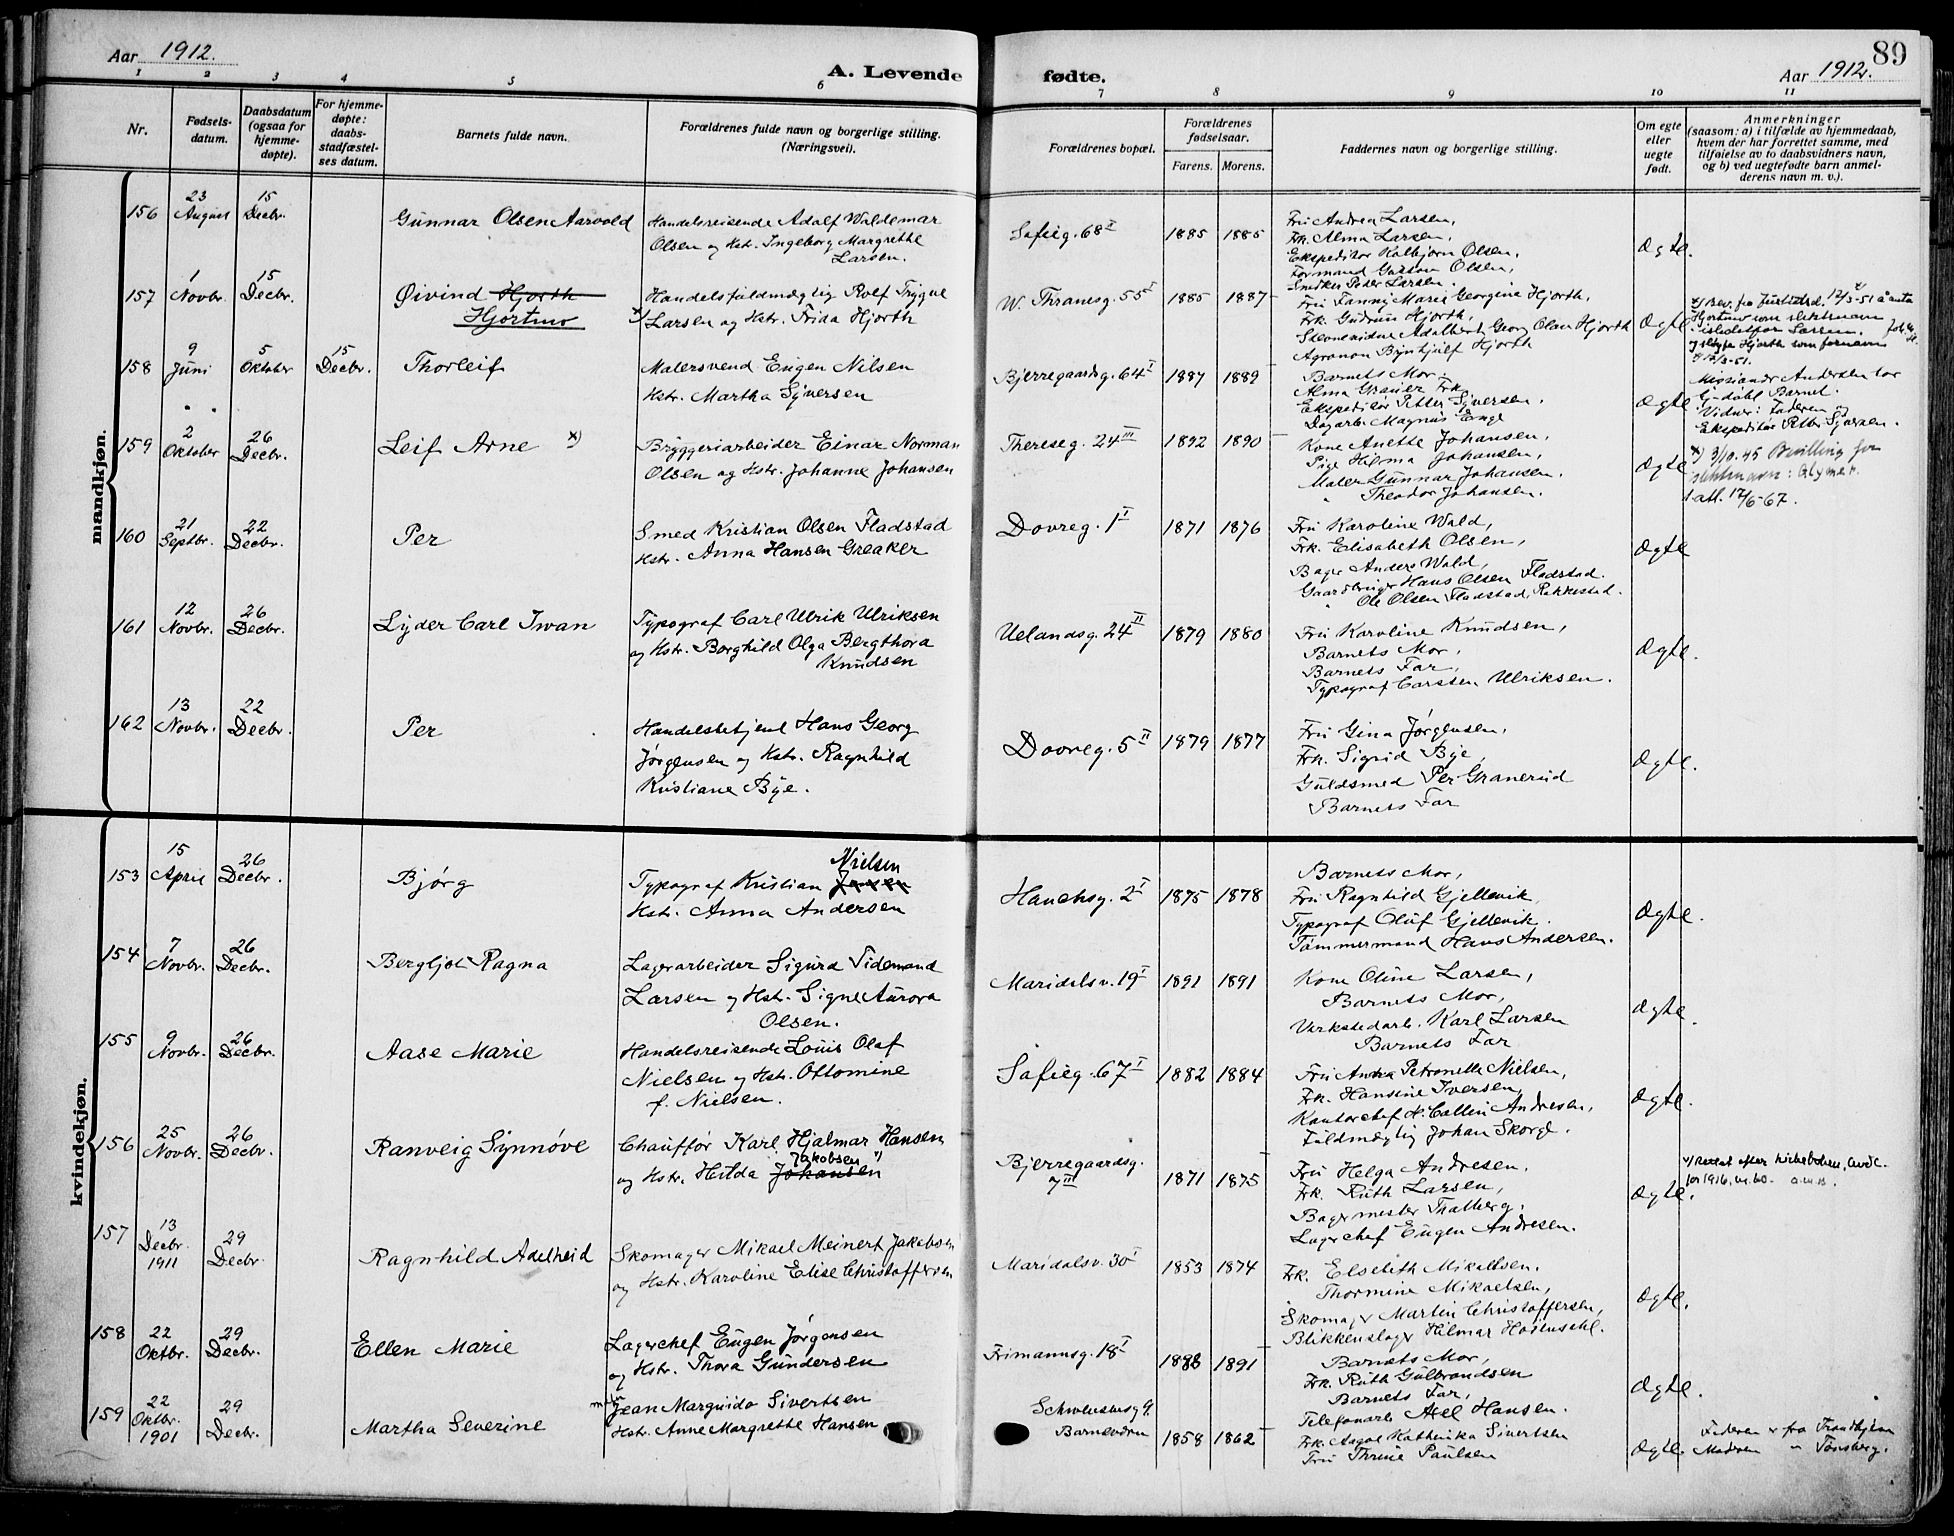 Aar 1912.
A. Levende fødte.
Aar 1912.
89
1 2 3 4 5 6 7 8 9 10 11
Nr.
Fødsels-
datum.
Daabsdatum
(ogsaa for
hjemme-
døpte).
For hjemme-
døpte:
daabs-
stadfæstel-
ses datum.
Barnets fulde navn.
Forældrenes fulde navn og borgerlige stilling.
(Næringsvei).
Forældrenes bopæl.
Forældrenes
fødselsaar.
Farens. Morens.
Faddernes navn og borgerlige stilling.
Om egte
eller
uegte
født.
Anmerkninger
(saasom: a) i tilfælde av hjemmedaab,
hvem der har forrettet samme, med
tilføielse av to daabsvidners navn,
og b) ved uegtefødte barn anmel-
derens navn m. v.).
mandkjøn.
156
23
August
15
Decbr.
Gunnar Olsen Aarvold
Handelsreisende Adolf Waldemar
Olsen og Hstr. Ingeborg Margrethe
Larsen.
Sofieg. 68 I
1885 1885
Fru Andrea Larsen,
Frk. Alma Larsen,
Ekspeditør Kolbjørn Olsen,
Formand Olsen,
Snekker Peder Larsen.
Ægte.
157
1
Novbr.
15
Decbr.
Øivind Hjorth
Hjortmo
Handelsfuldmægtig Rolf Trygve
Larsen og Hstr. Frida Hjorth
W. Thranesg. 55 I
1885 1887
Fru Fanny Marie Georgine Hjorth,
Frk. Gudrun Hjorth,
Adalbert Georg Olau Hjorth
Agronom Brynhjulf Hjorth
Ægte.
Hjortmo som slektsnavn
istedetfor Larsen,
og sløife Hjorth som fornavn
158
9
Juni
5
Oktober
15
Decbr.
Thorleif
Malersvend Eugen Nilsen
Hstr. Martha Syversen
Bjerregaardsg. 64 I
1887 1889
Barnets Mor.
Alma Grauer Frk.
Ekspeditør Petter Syversen,
Dagarb. Magnus Enge
Ægte.
Andersen har
Barnet.
Vidner: Faderen og
Ekspeditør Petter Syversen.
159
2
Oktober
26
Decbr.
Leif Arne x)
Bryggeriarbeider Einar Norman
Olsen og Hstr. Johanne Johansen
Thereseg. 24 III
1892 1890
Kone Anette Johansen,
Pige Hilma Johansen,
Maler Gunnar Johansen.
" Theodor Johansen.
Ægte.
x) 3/10.45 Bevilling for
slektsnavn:
att. 12/6-67.
160
21
Septbr.
22
Decbr.
Per
Smed Kristian Olsen Fladstad
Hstr. Anna Hansen Greaker
Dovreg. 1 I
1871 1876
Fru Karoline Wold,
Frk. Elisabeth Olsen,
Bager Anders Wold,
Gaardbruger Hans Olsen Fladstad.
" Ole Olsen Fladstad, Rakkestad.
Ægte
161
12
Novbr.
26
Decbr.
Lyder Carl Iwan
Typograf Carl Ulrik Ulriksen
og Hstr. Borghild Olga Bergthora
Knudsen
Uelandsg. 24 II
1879 1880
Fru Karoline Knudsen,
Barnets Mor,
Barnets Far,
Typograf Carsten Ulriksen.
Ægte.
162
13
Novbr.
22
Decbr.
Per
Handelsbetjent Hans Georg
Jørgensen og Hstr. Ragnhild
Kristiane Bye.
Dovreg. 5 II
1879 1877
Fru Gina Jørgensen,
Frk. Sigrid Bye,
Guldsmed Per Granerud
Barnets Far
Ægte.
kvindekjøn.
153
15
April
26
Decbr.
Bjørg
Nielsen
Typograf Kristian Jensen
Hstr. Anna Andersen
Hauchsg. 2 I
1875 1878
Barnets Mor,
Fru Ragnhild Gjellevik,
Typograf Oluf Gjellevik.
Tømmermand Hans Andersen.
Ægte.
154
7
Novbr.
26
Decbr.
Bergljot Ragna
Lagerarbeider Sigurd Tidemand
Larsen og Hstr. Signe Aurora
Olsen.
Maridalsv. 19 I
1891 1891
Kone Oline Larsen,
Barnets Mor,
Verkstedarb. Karl Larsen
Barnets Far
Ægte.
155
9
Novbr.
26
Decbr.
Aase Marie
Handelsreisende Louis Olaf
Nielsen og Hstr. Ottomine
f. Nielsen.
Sofieg. 67 I
1882 1884
Fru Anna Petronelle Nielsen,
Frk. Hansine Iversen,
Kontorchef H. Collin Andresen,
Fuldmægtig Johan Skorge.
Ægte.
156
25
Novbr.
26
Decbr.
Ranveig Synnøve
Chauffør Karl Hjalmar Hansen
Jakobsen
og Hstr. Hilda Johansen
Bjerregaardsg.
7 III
1871 1875
Fru Helga Andresen,
Frk. Ruth Larsen,
Bagermester Thalberg,
Lagerchef Eugen Andresen.
Ægte.
Rettet efter kirkeboken,
for 1916,
157
13
Decbr.
1911
29
Decbr.
Ragnhild Adelheid
Skomager Mikael Meinert Jakobsen
og Hstr. Karoline Elise Christoffersen
Maridalsv. 30 I
1853 1874
Frk. Elsebeth Mikaelsen.
Thormine Mikaelsen,
Skomager Martin Christoffersen,
Blikkenslager Hilmar
Ægte.
158
22
Oktbr.
29
Decbr.
Ellen Marie
Lagerchef Eugen Jørgensen
og Hstr. Thora Gundersen
Frimannsg. 18 I
1888 1891
Barnets Mor,
Frk. Ruth Gulbrandsen
Barnets Far,
Telefonarb Axel Hansen.
Ægte.
159
22
Oktbr.
1901
29
Decbr.
Martha Severine
Jean Marguido Sivertsen
Hstr. Anne Margrethe Hansen
Schwensensg 9.
1858 1862
Frk. Aagot Kathinka Sivertsen
Fru Thrine Paulsen
Ægte.
Faderen er fra Trondhjem
Moderen " Tønsberg.